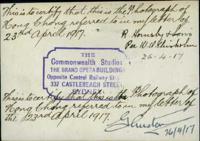 This is to certify that this is the Photograph of
Kong Chong referred to in my letter of
23rd April 1917.
R Hornsby & Sons
Per W.A. Chisholm
26-4-17
THE
Commonwealth Studios
THE GRAND OPERA BUILDINGS
Opposite Central Railway Stn
337 CASTLEREAGH STREET
SYDNEY
This is to certify that this is the Photograph of
Kong Chong referred to in my letter
of the 23rd April 1917.
26/4/17